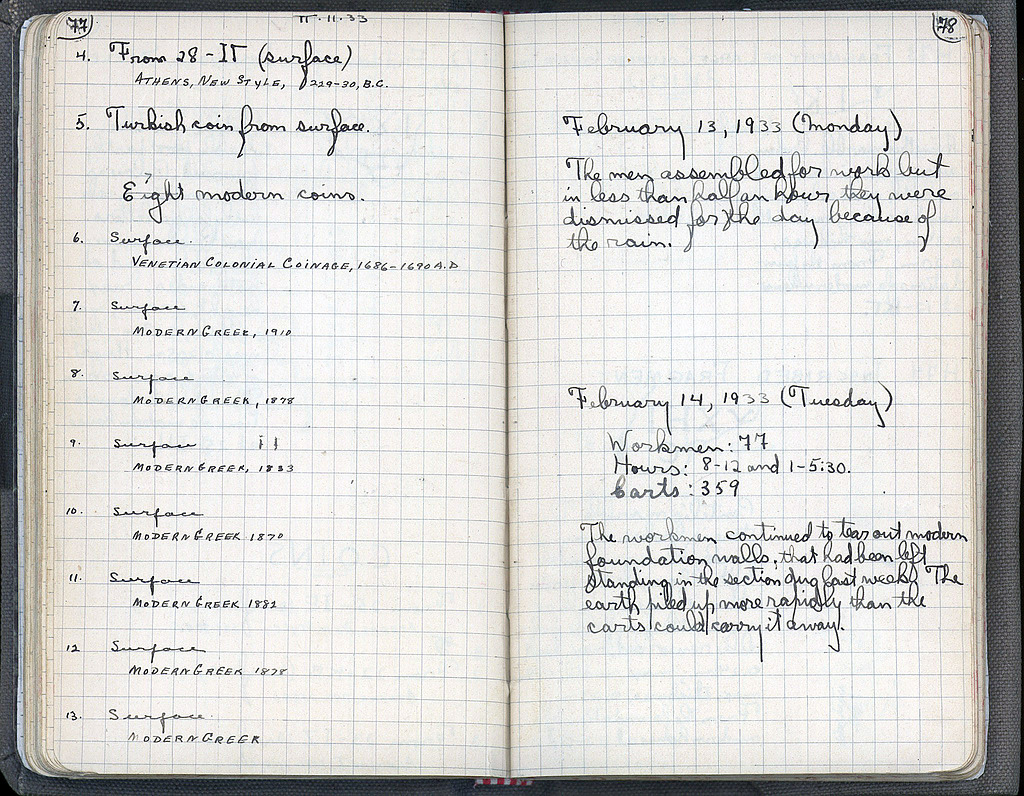 77
II.11.33
4. From 28-IΓ (surface)
ATHENS, NEW STYLE, 229-30, B.C.
5. Turkish coin from surface.
?
Eight modern coins.
6. Surface.
VENETIAN COLONIAL COINAGE, 1686-1690 A.D
7. Surface
MODERN GREEK, 1910
8. Surface
MODERN GREEK, 1878
9. Surface
MODERN GREEK, 1833
10. Surface
MODERN GREEK 1870
11. Surface
MODERN GREEK 1882
12 Surface
MODERN GREEK 1878
13. Surface.
MODERN GREEK
78
February 13, 1933 (Monday)
The men assembled for work but
in less than half an hour they were
dismissed for the day because of
the rain.
February 14, 1933 (Tuesday)
Workmen: 77
Hours: 8-12 and 1-5:30.
Carts: 359
The workmen continued to tear out modern
foundation walls, that had been left
standing in the section dug last week. The
earth piled up more rapidly than the
carts could carry it away.